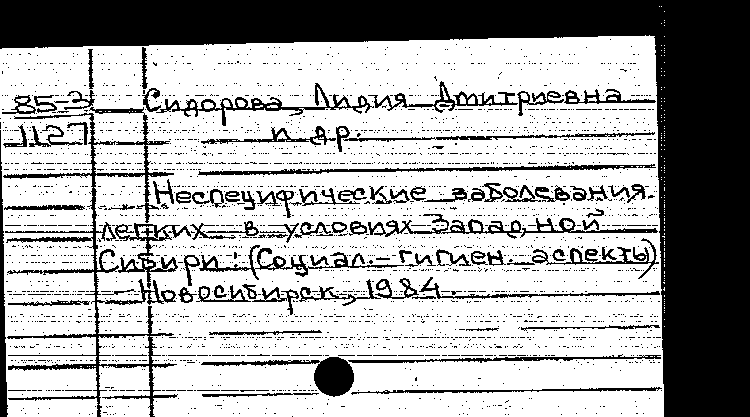 85-3 Сидорова, Лидия Дмитриевна
1127 и др.
Неспецифические заболевания
легких в условиях Западной
Сибири: (Социал.-гигиен. аспекты)
Новосибирск, 1984.